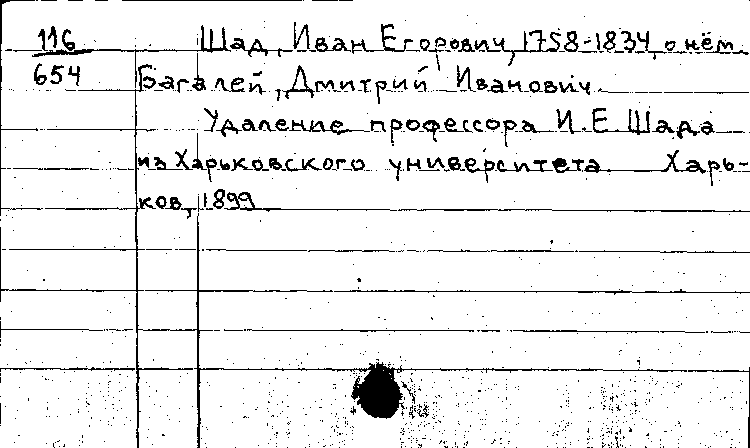 116 Шад, Иван Егорович, 1758-1834, о нём.
654 Багалей, Дмитрий Иванович.
Удаление профессора И.Е. Шада
из Харьковского университета. Харь-
ков, 1899